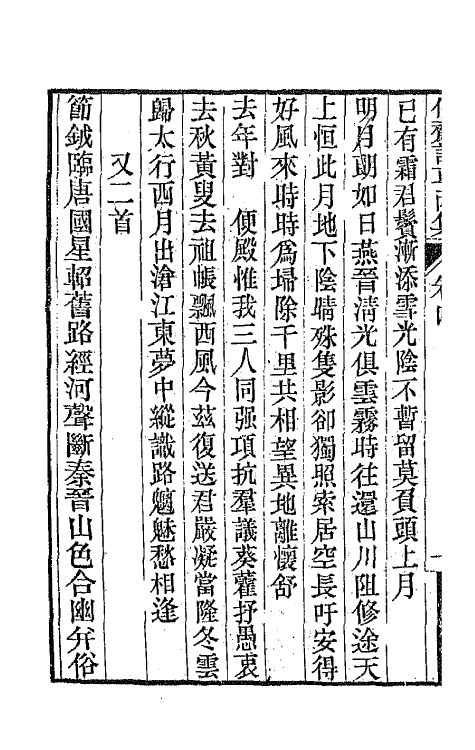 已有霜君鬢漸添雪光陰不暫留莫負頭上月
明月朗如日燕晉清光俱雲霧時往還山川阻修途天
上恒此月地下陰晴殊隻影卻獨照索居空長吁安得
好風來時時爲埽除千里共相望異地離懷舒
去年對　便殿惟我三人同强項抗羣議葵藿抒愚衷
去秋黃叟去祖帳飄西風今茲復送君嚴凝當隆冬雲
歸太行西月出滄江東夢中縱識路魑魅愁相逢
又二首
節鉞臨唐國星軺舊路經河聲斷秦晉山色合幽幷俗